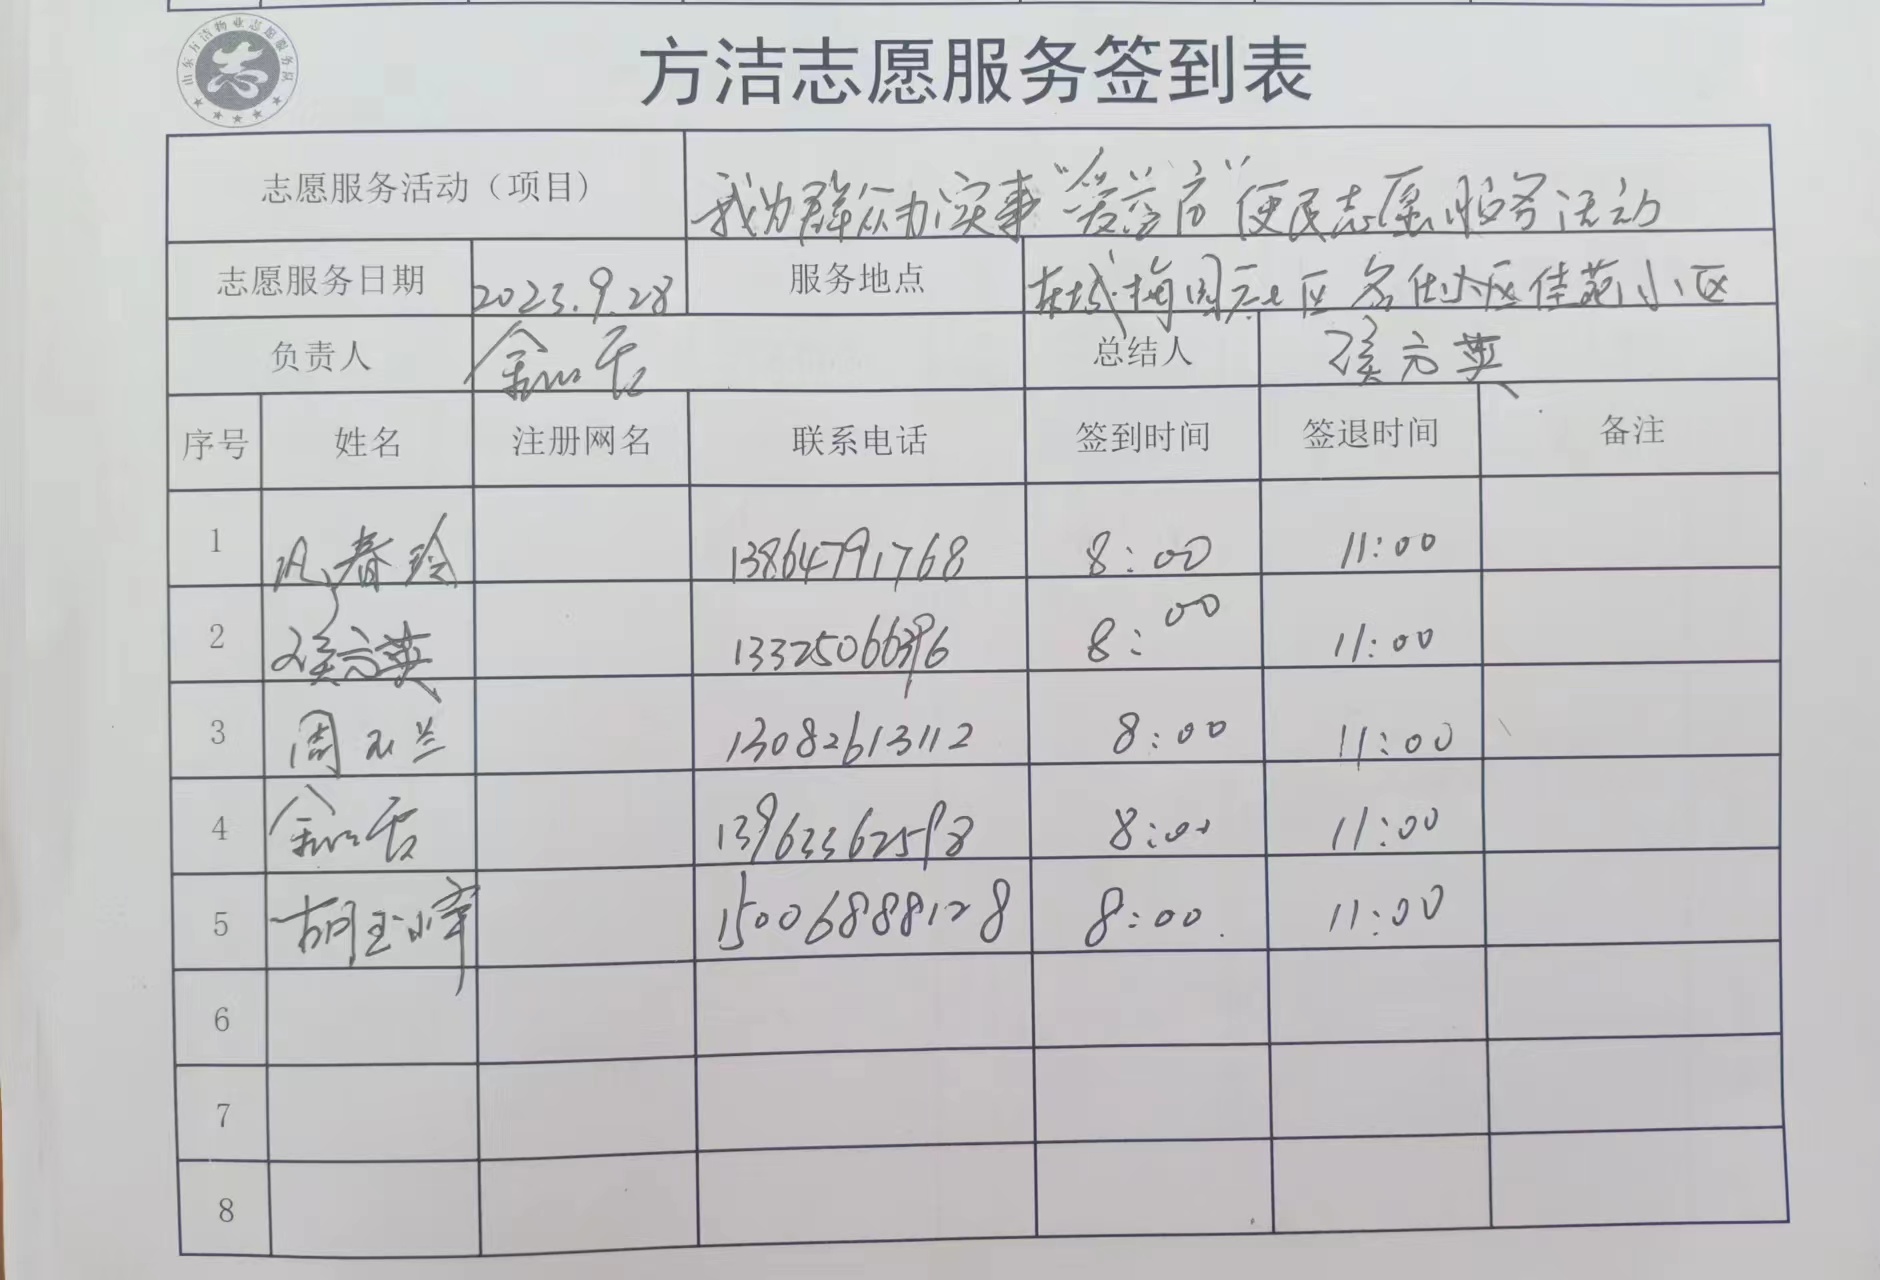 山东方洁物业志愿服务队
方洁志愿服务签到表
志愿服务活动（项目） 我为群众办实事“爱益方”便民志愿服务活动
志愿服务日期 2023.9.28 服务地点 东城梅园社区名仕小区佳苑小区
负责人 总结人 侯方英
序号 姓名 注册网名 联系电话 签到时间 签退时间 备注
1 春玲 13864791768 8:00 11:00
2 侯方英 8:00 11:00
3 周玉兰 13082613112 8:00 11:00
4 13963362598 8:00 11:00
5 胡玉 15006888128 8:00 11:00
6
7
8